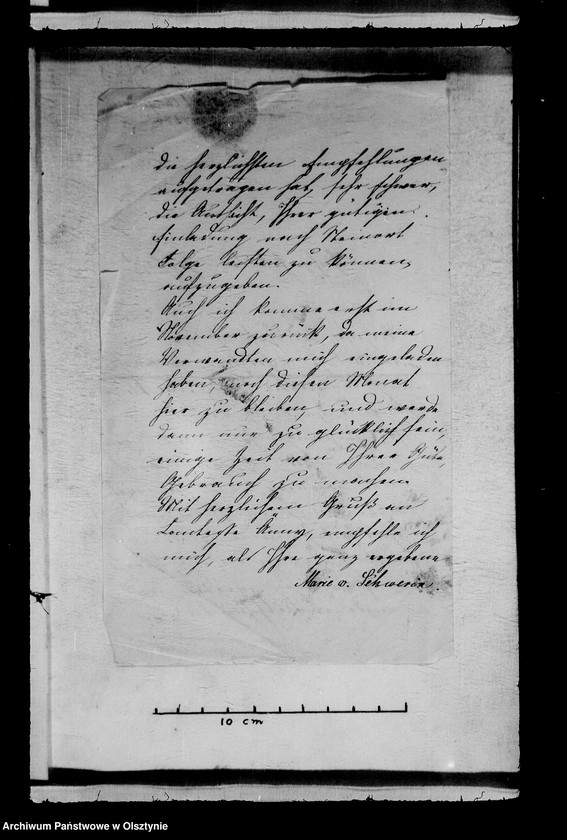 die herzlichsten Empfehlungen
aufgetragen hat, sehr schwer,
die Aussicht, Ihrer gütigen
Einladung nach Steinort
Folge leisten zu können,
aufzugeben.
Auch ich komme erst im
November zurück, da meine
Verwandten mich eingeladen
haben, noch diesen Monat
hier zu bleiben, und werde
dann nur zu glücklich sein,
einige Zeit von Ihrer Güte
Gebrauch zu machen.
Mit herzlichem Gruß an
Comtesse Anny, empfehle ich
mich, als Ihre ganz ergebene
Marie v. Schwerin.
10 cm
Archiwum Państwowe w Olsztynie